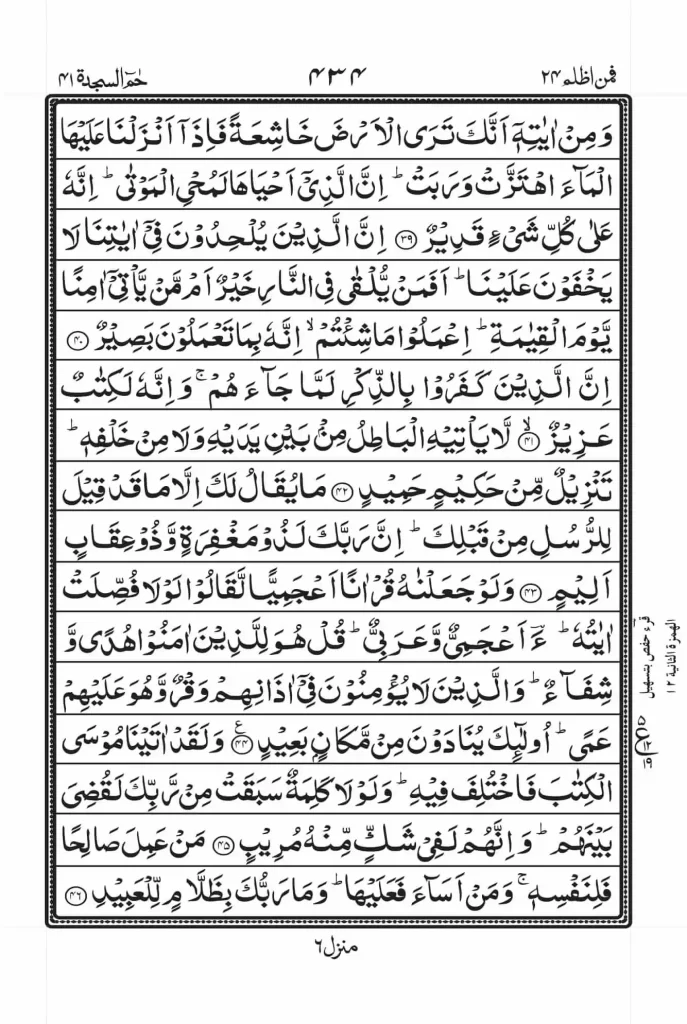 فمن اظلم ۲۴
۴۳۴
حٰمٓ السجدة ۴۱
وَمِنْ اٰيٰتِهٖۤ اَنَّكَ تَرَى الْاَرْضَ خَاشِعَةً فَاِذَاۤ اَنْزَلْنَا عَلَيْهَا
الْمَآءَ اهْتَزَّتْ وَرَبَتْ ؕ اِنَّ الَّذِىْۤ اَحْيَاهَا لَمُحْىِ الْمَوْتٰى ؕ اِنَّهٗ
عَلٰى كُلِّ شَىْءٍ قَدِيْرٌ ﴿۳۹﴾ اِنَّ الَّذِيْنَ يُلْحِدُوْنَ فِىْۤ اٰيٰتِنَا لَا
يَخْفَوْنَ عَلَيْنَا ؕ اَفَمَنْ يُّلْقٰى فِى النَّارِ خَيْرٌ اَمْ مَّنْ يَّاْتِىْۤ اٰمِنًا
يَّوْمَ الْقِيٰمَةِ ؕ اِعْمَلُوْا مَا شِئْتُمْ ۙ اِنَّهٗ بِمَا تَعْمَلُوْنَ بَصِيْرٌ ﴿۴۰﴾
اِنَّ الَّذِيْنَ كَفَرُوْا بِالذِّكْرِ لَمَّا جَآءَهُمْ ۚ وَاِنَّهٗ لَكِتٰبٌ
عَزِيْزٌ ﴿۴۱﴾ۙ لَّا يَاْتِيْهِ الْبَاطِلُ مِنْۢ بَيْنِ يَدَيْهِ وَلَا مِنْ خَلْفِهٖ ؕ
تَنْزِيْلٌ مِّنْ حَكِيْمٍ حَمِيْدٍ ﴿۴۲﴾ مَا يُقَالُ لَكَ اِلَّا مَا قَدْ قِيْلَ
لِلرُّسُلِ مِنْ قَبْلِكَ ؕ اِنَّ رَبَّكَ لَذُوْ مَغْفِرَةٍ وَّذُوْ عِقَابٍ
اَلِيْمٍ ﴿۴۳﴾ وَلَوْ جَعَلْنٰهُ قُرْاٰنًا اَعْجَمِيًّا لَّقَالُوْا لَوْلَا فُصِّلَتْ
اٰيٰتُهٗ ؕ ءَؔاَعْجَمِىٌّ وَّعَرَبِىٌّ ؕ قُلْ هُوَ لِلَّذِيْنَ اٰمَنُوْا هُدًى وَّ
شِفَآءٌ ؕ وَالَّذِيْنَ لَا يُؤْمِنُوْنَ فِىْۤ اٰذَانِهِمْ وَقْرٌ وَّهُوَ عَلَيْهِمْ
عَمًى ؕ اُولٰٓئِكَ يُنَادَوْنَ مِنْ مَّكَانٍۭ بَعِيْدٍ ﴿۴۴﴾ۧ وَلَقَدْ اٰتَيْنَا مُوْسَى
الْكِتٰبَ فَاخْتُلِفَ فِيْهِ ؕ وَلَوْلَا كَلِمَةٌ سَبَقَتْ مِنْ رَّبِّكَ لَقُضِىَ
بَيْنَهُمْ ؕ وَاِنَّهُمْ لَفِىْ شَكٍّ مِّنْهُ مُرِيْبٍ ﴿۴۵﴾ مَنْ عَمِلَ صَالِحًا
فَلِنَفْسِهٖ ۚ وَمَنْ اَسَآءَ فَعَلَيْهَا ؕ وَمَا رَبُّكَ بِظَلَّامٍ لِّلْعَبِيْدِ ﴿۴۶﴾
قرء حفص بتسهيل
الهمزة الثانية ۱۲
منزل ۶